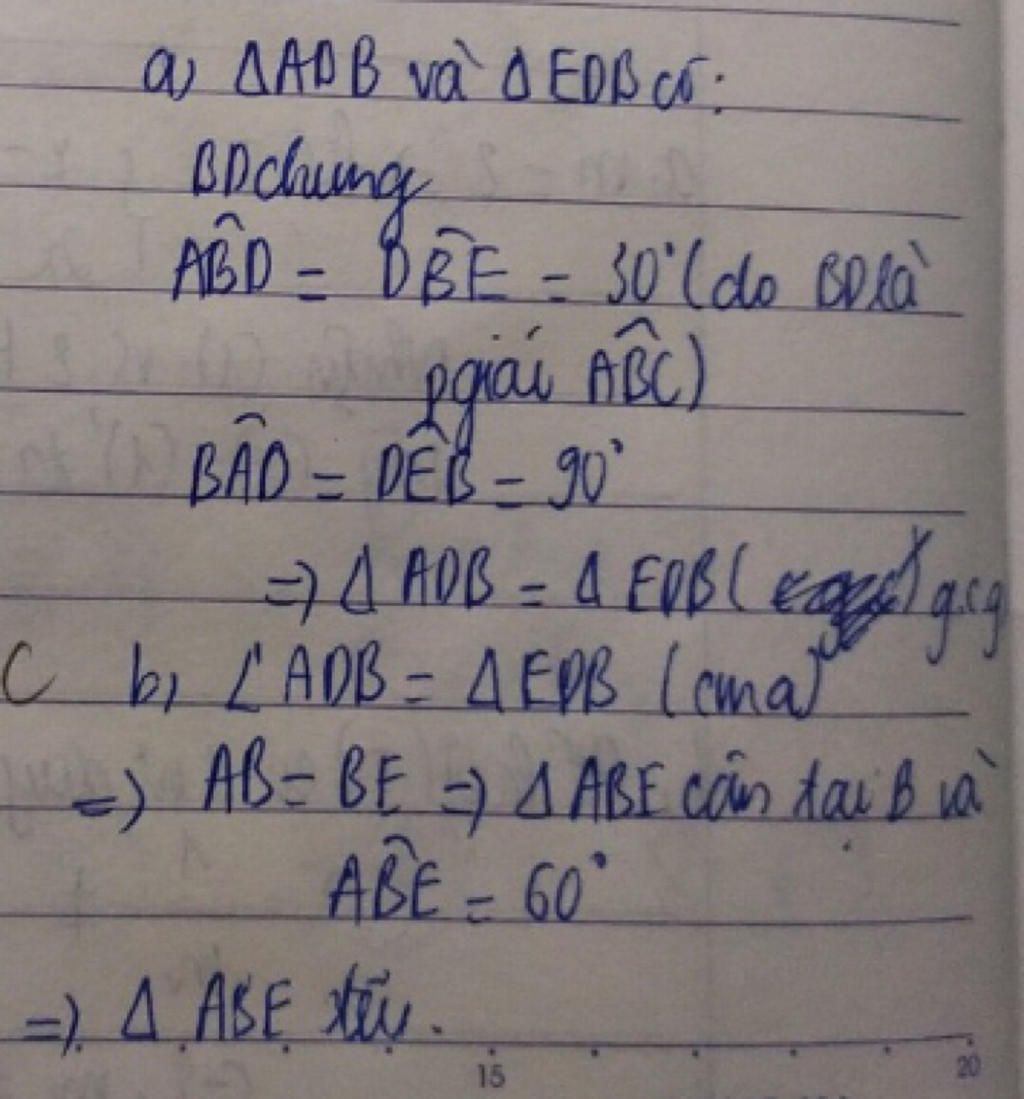 a) ΔADB và ΔEDB có:
BD chung
ABD̂ = DBÊ = 30° (do BD là
pgiái ABĈ)
BAD̂ = DEB̂ = 90°
=> Δ ADB = Δ EDB ( ) g.c.g
C b, ∠ADB = ΔEDB (cma)
=> AB = BE => ΔABE cân tại B và
ABÊ = 60°
=> Δ ABE đều.
15 20